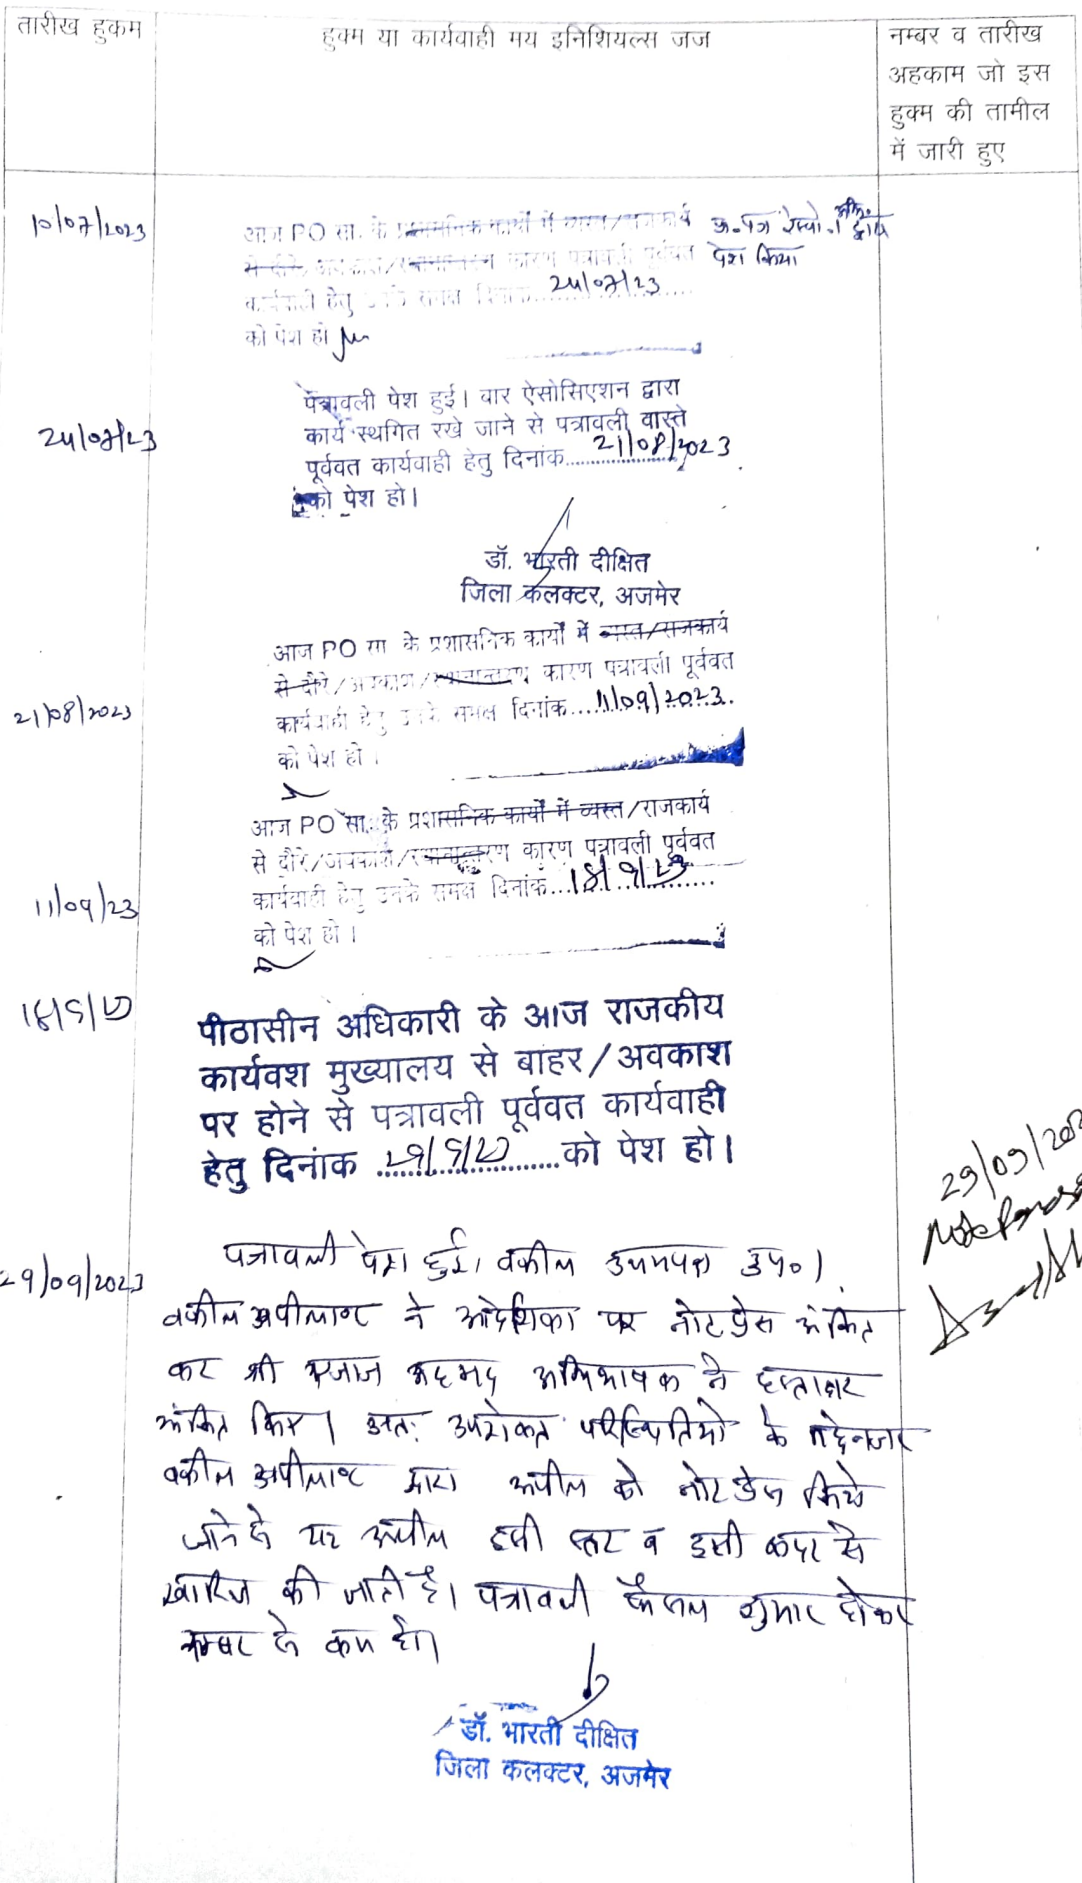 तारीख हुकम
हुक्म या कार्यवाही मय इनिशियल्स जज
नम्बर व तारीख
अहकाम जो इस
हुक्म की तामील
में जारी हुए
10/07/2023
आज PO सा. के प्रशासनिक कार्यों में व्यस्त/राजकार्य
से दौरे/अवकाश/स्थानान्तरण कारण पत्रावली पूर्ववत
कार्यवाही हेतु उनके समक्ष दिनांक....24/07/23......
को पेश हो
पेश किया
24/07/23
पत्रावली पेश हुई। बार ऐसोसिएशन द्वारा
कार्य स्थगित रखे जाने से पत्रावली वास्ते
पूर्ववत कार्यवाही हेतु दिनांक....21/08/2023
को पेश हो।
डॉ. भारती दीक्षित
जिला कलक्टर, अजमेर
21/08/2023
आज PO सा के प्रशासनिक कार्यों में व्यस्त/राजकार्य
से दौरे/अवकाश/स्थानान्तरण कारण पत्रावली पूर्ववत
कार्यवाही हेतु उनके समक्ष दिनांक....11/09/2023.
को पेश हो ।
11/09/23
आज PO सा. के प्रशासनिक कार्यों में व्यस्त/राजकार्य
से दौरे/अवकाश/स्थानान्तरण कारण पत्रावली पूर्ववत
कार्यवाही हेतु उनके समक्ष दिनांक...18/9/23......
को पेश हो ।
18/9/23
पीठासीन अधिकारी के आज राजकीय
कार्यवश मुख्यालय से बाहर/अवकाश
पर होने से पत्रावली पूर्ववत कार्यवाही
हेतु दिनांक ...29/9/23......को पेश हो।
29/09/2023
पत्रावली पेश हुई। वकील उभयपक्ष उप०।
वकील अपीलाण्ट ने आदेशिका पर नोटप्रेस अंकित
कर श्री एजाज अहमद अभिभाषक ने हस्ताक्षर
अंकित किए। अतः उपरोक्त परिस्थितियो के मद्देनजर
वकील अपीलाण्ट द्वारा अपील को नोट प्रेस किये
जाने से यह अपील इसी स्तर व इसी कदर से
खारिज की जाती है। पत्रावली फैसल शुमार होकर
नम्बर से कम हो।
डॉ. भारती दीक्षित
जिला कलक्टर, अजमेर
29/09/202